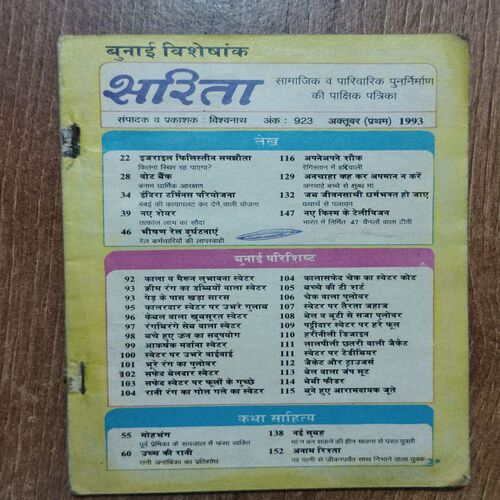 बुनाई विशेषांक
सरिता
सामाजिक व पारिवारिक पुनर्निर्माण
की पाक्षिक पत्रिका
संपादक व प्रकाशक : विश्वनाथ अंक : 923 अक्तूबर (प्रथम) 1993
लेख
22 इजराइल फिलिस्तीन समझौता
कितना स्थिर रह पाएगा?
28 वोट बैंक
बनाम धार्मिक आरक्षण
34 इंदिरा टर्मिनस परियोजना
बंबई की कायापलट कर देने वाली योजना
39 नए शेयर
तत्काल लाभ का सौदा
46 भीषण रेल दुर्घटनाएं
रेल कर्मचारियों की लापरवाही
116 अपनेअपने शौक
रेगिस्तान में हरियाली
129 अनचाहा कह कर अपमान न करें
अनचाहे बच्चे से क्षुब्ध मां
132 जब जीवनसाथी धर्मभक्त हो जाए
यथार्थ से पलायन
147 नए किस्म के टेलीविजन
भारत में निर्मित 47 चैनलों वाला टीवी
बुनाई परिशिष्ट
92 काला व मैरून लुभावना स्वेटर
93 क्रीम रंग का डब्बियों वाला स्वेटर
93 पेड़ के पास खड़ा सारस
95 कालरदार स्वेटर पर उभरे गुलाब
96 केबल वाला खूबसूरत स्वेटर
97 रंगबिरंगे सेब वाला स्वेटर
98 बचे हुए ऊन का सदुपयोग
99 आकर्षक मर्दाना स्वेटर
100 स्वेटर पर उभरे वाईवाई
101 भूरे रंग का पुलोवर
102 सफेद बेलदार स्वेटर
103 सफेद स्वेटर पर फूलों के गुच्छे
104 रानी रंग का गोल गले का स्वेटर
104 कालासफेद चेक का स्वेटर कोट
105 बच्चे की टी शर्ट
106 चेक वाला पुलोवर
107 स्वेटर पर तैरता जहाज
108 बेल व बूटी से सजा पुलोवर
109 पट्टीदार स्वेटर पर हरे फूल
110 हरीनीली डिजाइन
111 लालपीली छतरी वाली जैकेट
111 स्वेटर पर टेडीबियर
112 जैकेट और ट्राउजर्स
113 बेल वाला जंप सूट
114 बेबी फीडर
115 बुने हुए आरामदायक जूते
कथा साहित्य
55 मोहभंग
पूर्व प्रेमिका के रूपजाल में फंसा व्यक्ति
60 उच्च की रानी
रानी अनामिका का प्रतिशोध
138 नई सुबह
मां न बन सकने की हीन भावना से ग्रस्त युवती
152 अनाम रिश्ता
पर पत्नी से जीवनपर्यंत साथ निभाने वाला युवक